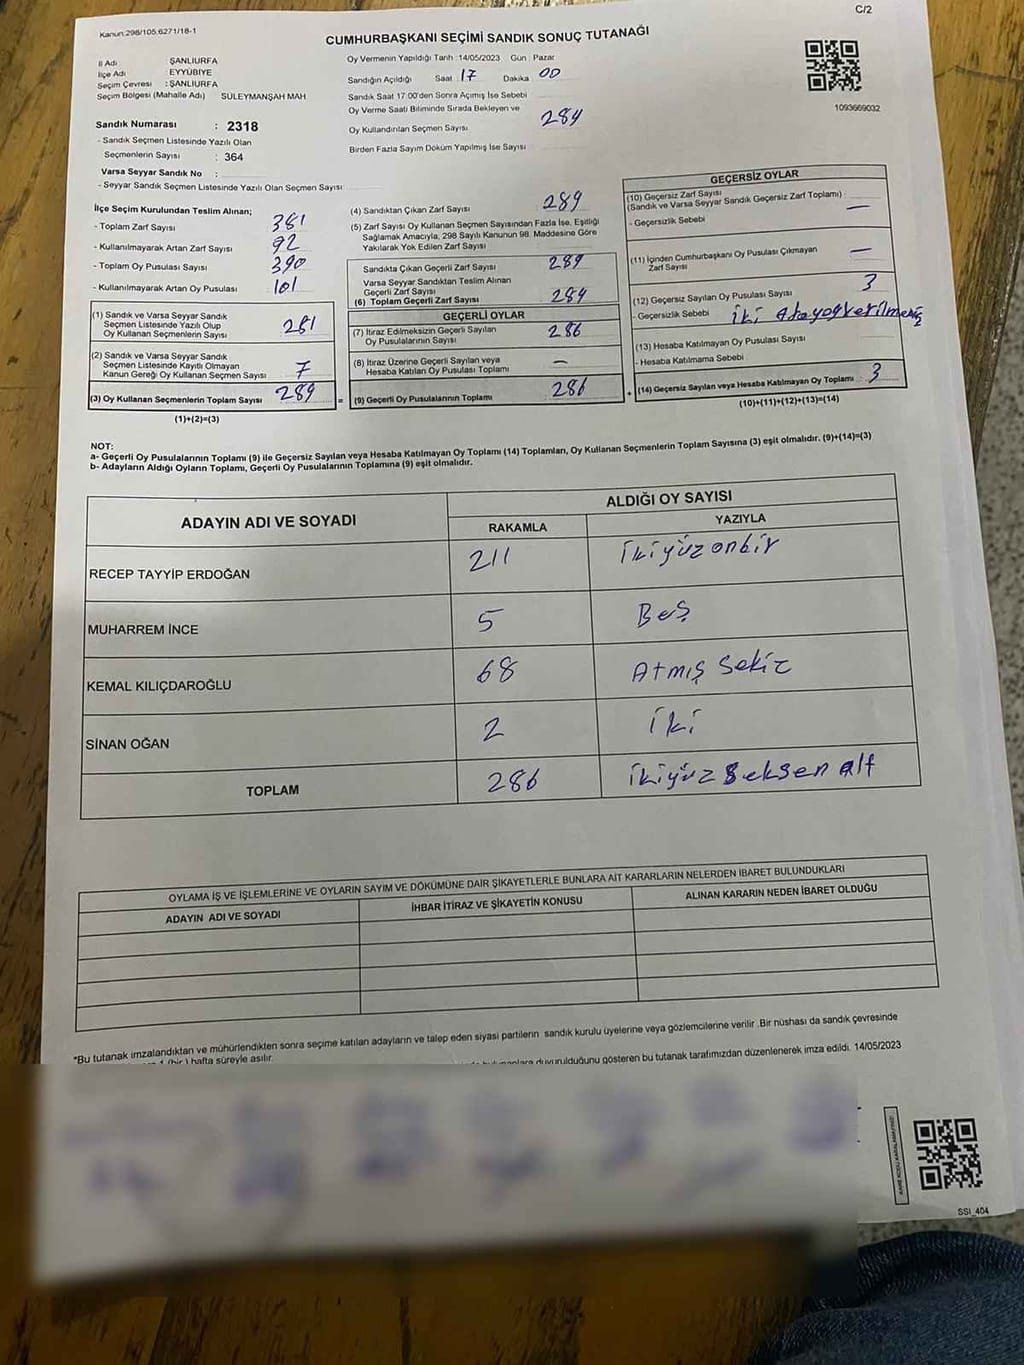 C/2
Kanun.298/105,6271/18-1
CUMHURBAŞKANI SEÇİMİ SANDIK SONUÇ TUTANAĞI
İl Adı : ŞANLIURFA
İlçe Adı : EYYÜBİYE
Seçim Çevresi : ŞANLIURFA
Seçim Bölgesi (Mahalle Adı) SÜLEYMANŞAH MAH
Oy Vermenin Yapıldığı Tarih : 14/05/2023 Gün : Pazar
Sandığın Açıldığı Saat : 17 Dakika : 00
Sandık Saat 17:00'den Sonra Açmış İse Sebebi
Oy Verme Saati Bitiminde Sırada Bekleyen ve
Oy Kullandırılan Seçmen Sayısı 284
Birden Fazla Sayım Döküm Yapılmış İse Sayısı
1093669032
Sandık Numarası : 2318
- Sandık Seçmen Listesinde Yazılı Olan
Seçmenlerin Sayısı : 364
Varsa Seyyar Sandık No :
- Seyyar Sandık Seçmen Listesinde Yazılı Olan Seçmen Sayısı:
İlçe Seçim Kurulundan Teslim Alınan;
- Toplam Zarf Sayısı : 381
- Kullanılmayarak Artan Zarf Sayısı : 92
- Toplam Oy Pusulası Sayısı : 390
- Kullanılmayarak Artan Oy Pusulası : 101
(1) Sandık ve Varsa Seyyar Sandık
Seçmen Listesinde Yazılı Olup
Oy Kullanan Seçmenlerin Sayısı : 281
(2) Sandık ve Varsa Seyyar Sandık
Seçmen Listesinde Kayıtlı Olmayan
Kanun Gereği Oy Kullanan Seçmen Sayısı : 7
(3) Oy Kullanan Seçmenlerin Toplam Sayısı : 289 =
(1)+(2)=(3)
(4) Sandıktan Çıkan Zarf Sayısı 289
(5) Zarf Sayısı Oy Kullanan Seçmen Sayısından Fazla İse, Eşitliği
Sağlamak Amacıyla, 298 Sayılı Kanunun 98. Maddesine Göre
Yakılarak Yok Edilen Zarf Sayısı
Sandıkta Çıkan Geçerli Zarf Sayısı 289
Varsa Seyyar Sandıktan Teslim Alınan
Geçerli Zarf Sayısı
(6) Toplam Geçerli Zarf Sayısı 289
GEÇERLİ OYLAR
(7) İtiraz Edilmeksizin Geçerli Sayılan
Oy Pusulalarının Sayısı : 286
(8) İtiraz Üzerine Geçerli Sayılan veya
Hesaba Katılan Oy Pusulası Toplamı : —
(9) Geçerli Oy Pusulalarının Toplamı : 286 +
GEÇERSİZ OYLAR
(10) Geçersiz Zarf Sayısı
(Sandık ve Varsa Seyyar Sandık Geçersiz Zarf Toplamı) : —
- Geçersizlik Sebebi
(11) İçinden Cumhurbaşkanı Oy Pusulası Çıkmayan
Zarf Sayısı —
(12) Geçersiz Sayılan Oy Pusulası Sayısı : 3
- Geçersizlik Sebebi : iki Adaya oy verilmemiş
(13) Hesaba Katılmayan Oy Pusulası Sayısı :
- Hesaba Katılmama Sebebi
(14) Geçersiz Sayılan veya Hesaba Katılmayan Oy Toplamı : 3
(10)+(11)+(12)+(13)=(14)
NOT:
a- Geçerli Oy Pusulalarının Toplamı (9) ile Geçersiz Sayılan veya Hesaba Katılmayan Oy Toplamı (14) Toplamları, Oy Kullanan Seçmenlerin Toplam Sayısına (3) eşit olmalıdır. (9)+(14)=(3)
b- Adayların Aldığı Oyların Toplamı, Geçerli Oy Pusulalarının Toplamına (9) eşit olmalıdır.
ADAYIN ADI VE SOYADI ALDIĞI OY SAYISI
RAKAMLA YAZIYLA
RECEP TAYYİP ERDOĞAN 211 ikiyüzonbir
MUHARREM İNCE 5 Beş
KEMAL KILIÇDAROĞLU 68 Atmış sekiz
SİNAN OĞAN 2 iki
TOPLAM 286 ikiyüz seksen altı
OYLAMA İŞ VE İŞLEMLERİNE VE OYLARIN SAYIM VE DÖKÜMÜNE DAİR ŞİKAYETLERLE BUNLARA AİT KARARLARIN NELERDEN İBARET BULUNDUKLARI
ADAYIN ADI VE SOYADI İHBAR İTİRAZ VE ŞİKAYETİN KONUSU ALINAN KARARIN NEDEN İBARET OLDUĞU
*Bu tutanak imzalandıktan ve mühürlendikten sonra seçime katılan adayların ve talep eden siyasi partilerin sandık kurulu üyelerine veya gözlemcilerine verilir .Bir nüshası da sandık çevresinde
1 (bir) hafta süreyle asılır.
duyurulduğunu gösteren bu tutanak tarafımızdan düzenlenerek imza edildi. 14/05/2023
SSI_404